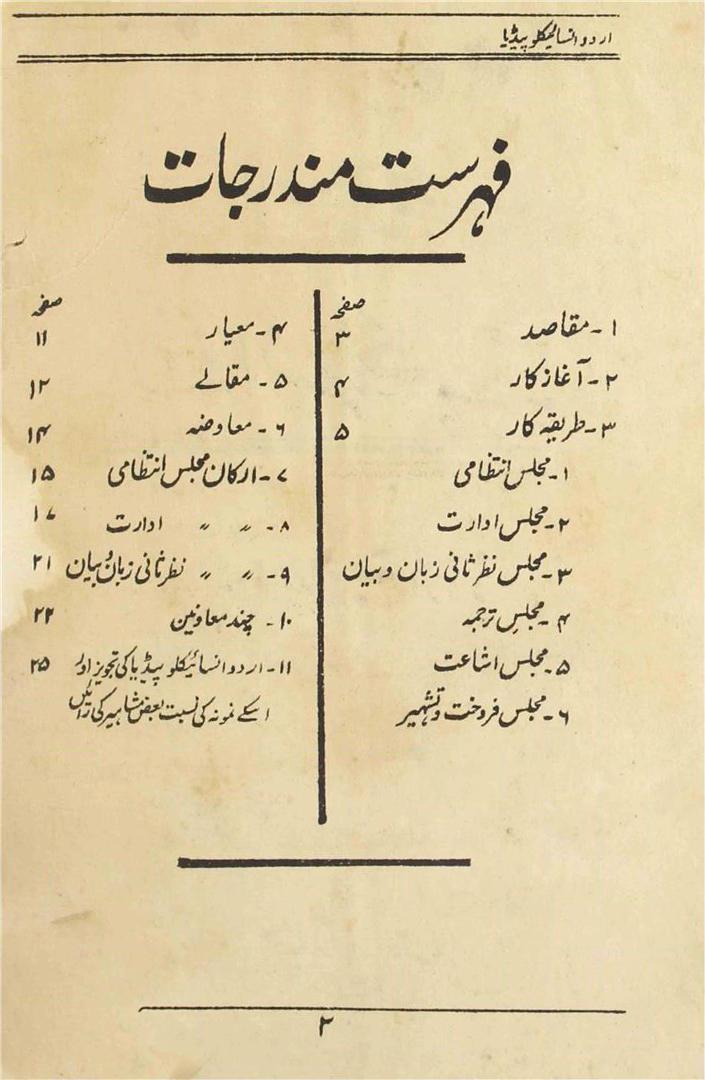 اردو انسائیکلو پیڈیا
فہرست مندرجات
صفحہ
۱۔ مقاصد ۳
۲۔ آغاز کار ۴
۳۔ طریقہ کار ۵
۱۔ مجلس انتظامی
۲۔ مجلس ادارت
۳۔ مجلس نظر ثانی زبان و بیان
۴۔ مجلسِ ترجمہ
۵۔ مجلس اشاعت
۶۔ مجلس فروخت و تشہیر
صفحہ
۴۔ معیار ۱۱
۵۔ مقالے ۱۲
۶۔ معاوضہ ۱۴
۷۔ ارکان مجلس انتظامی ۱۵
۸۔ " " ادارت ۱۷
۹۔ " " نظر ثانی زبان و بیان ۲۱
۱۰۔ چند معاونین ۲۲
۱۱۔ اردو انسائیکلو پیڈیا کی تجویز اور ۲۵
اسکے نمونہ کی نسبت بعض مشاہیر کی رائیں
۲